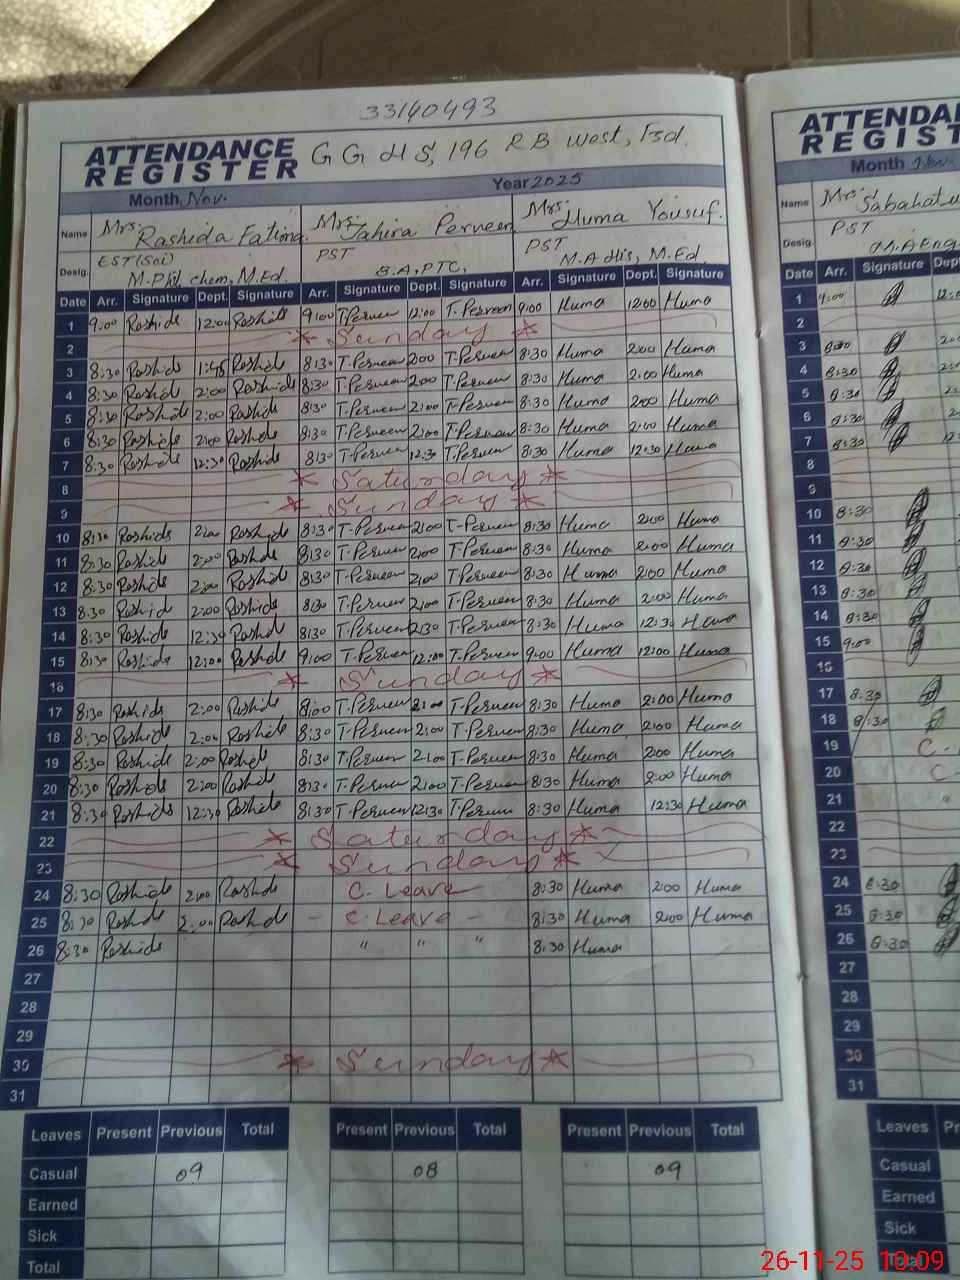 33140493
ATTENDANCE REGISTER G G H S, 196 R B West, Fsd.
Month Nov. Year 2025
Name Mrs. Rashida Fatima Mrs. Tahira Perveen Mrs. Huma Yousuf.
Desig. EST(Sci) M.Phil chem, M.Ed. PST B.A, PTC, PST M.A His, M.Ed.
Date Arr. Signature Dept. Signature Arr. Signature Dept. Signature Arr. Signature Dept. Signature
1 9:00 Rashida 12:00 Rashida 9:00 T.Perveen 12:00 T.Perveen 9:00 Huma 12:00 Huma
2 * Sunday *
3 8:30 Rashida 1:45 Rashida 8:30 T.Perveen 2:00 T.Perveen 8:30 Huma 2:00 Huma
4 8:30 Rashida 2:00 Rashida 8:30 T.Perveen 2:00 T.Perveen 8:30 Huma 2:00 Huma
5 8:30 Rashida 2:00 Rashida 8:30 T.Perveen 2:00 T.Perveen 8:30 Huma 2:00 Huma
6 8:30 Rashida 2:00 Rashida 8:30 T.Perveen 2:00 T.Perveen 8:30 Huma 2:00 Huma
7 8:30 Rashida 12:30 Rashida 8:30 T.Perveen 12:30 T.Perveen 8:30 Huma 12:30 Huma
8 * Saturday *
9 * Sunday *
10 8:30 Rashida 2:00 Rashida 8:30 T.Perveen 2:00 T.Perveen 8:30 Huma 2:00 Huma
11 8:30 Rashida 2:00 Rashida 8:30 T.Perveen 2:00 T.Perveen 8:30 Huma 2:00 Huma
12 8:30 Rashida 2:00 Rashida 8:30 T.Perveen 2:00 T.Perveen 8:30 Huma 2:00 Huma
13 8:30 Rashida 2:00 Rashida 8:30 T.Perveen 2:00 T.Perveen 8:30 Huma 2:00 Huma
14 8:30 Rashida 12:30 Rashida 8:30 T.Perveen 12:30 T.Perveen 8:30 Huma 12:30 Huma
15 8:30 Rashida 12:00 Rashida 9:00 T.Perveen 12:00 T.Perveen 9:00 Huma 12:00 Huma
16 * Sunday *
17 8:30 Rashida 2:00 Rashida 8:00 T.Perveen 2:00 T.Perveen 8:30 Huma 2:00 Huma
18 8:30 Rashida 2:00 Rashida 8:30 T.Perveen 2:00 T.Perveen 8:30 Huma 2:00 Huma
19 8:30 Rashida 2:00 Rashida 8:30 T.Perveen 2:00 T.Perveen 8:30 Huma 2:00 Huma
20 8:30 Rashida 2:00 Rashida 8:30 T.Perveen 2:00 T.Perveen 8:30 Huma 2:00 Huma
21 8:30 Rashida 12:30 Rashida 8:30 T.Perveen 12:30 T.Perveen 8:30 Huma 12:30 Huma
22 * Saturday *
23 * Sunday *
24 8:30 Rashida 2:00 Rashida C. Leave 8:30 Huma 2:00 Huma
25 8:30 Rashida 2:00 Rashida - C. Leave - 8:30 Huma 2:00 Huma
26 8:30 Rashida " " " 8:30 Huma
27
28
29
30 * Sunday *
31
Leaves Present Previous Total Present Previous Total Present Previous Total
Casual 09 08 09
Earned
Sick
Total
ATTENDA
REGIST
Month Nov.
Name Mrs. Sabahat
Desig. PST M.A Eng
Date Arr. Signature Dept
1 9:00 12:0
2
3 8:30 2:0
4 8:30 2:0
5 8:30 2:
6 8:30 2:
7 8:30 12:
8
9
10 8:30
11 8:30
12 8:30
13 8:30
14 8:30
15 9:00
16
17 8:30
18 8:30
19 C.
20 C.
21 "
22
23
24 8:30
25 8:30
26 8:30
27
28
29
30
31
Leaves Pr
Casual
Earned
Sick
Total
26-11-25 10:09